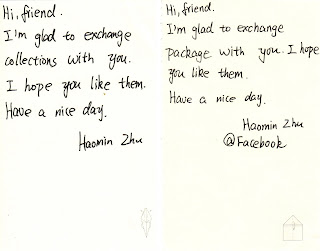 Hi, friend.
I'm glad to exchange
collections with you.
I hope you like them.
Have a nice day.
Haomin Zhu
Hi, friend.
I'm glad to exchange
package with you. I hope
you like them.
Have a nice day.
Haomin Zhu
@Facebook